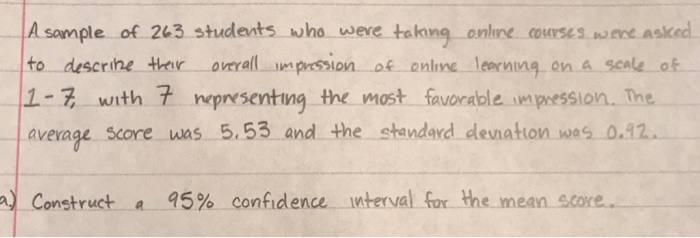 A sample of 263 students who were taking online courses were asked
to describe their overall impression of online learning on a scale of
1-7, with 7 representing the most favorable impression. The
average score was 5.53 and the standard deviation was 0.92.
a.) Construct a 95% confidence interval for the mean score.